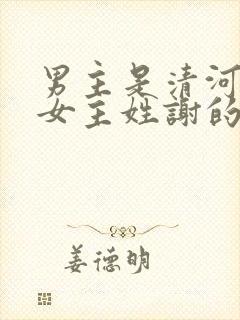 男主是清河
女主姓謝的
姜德明